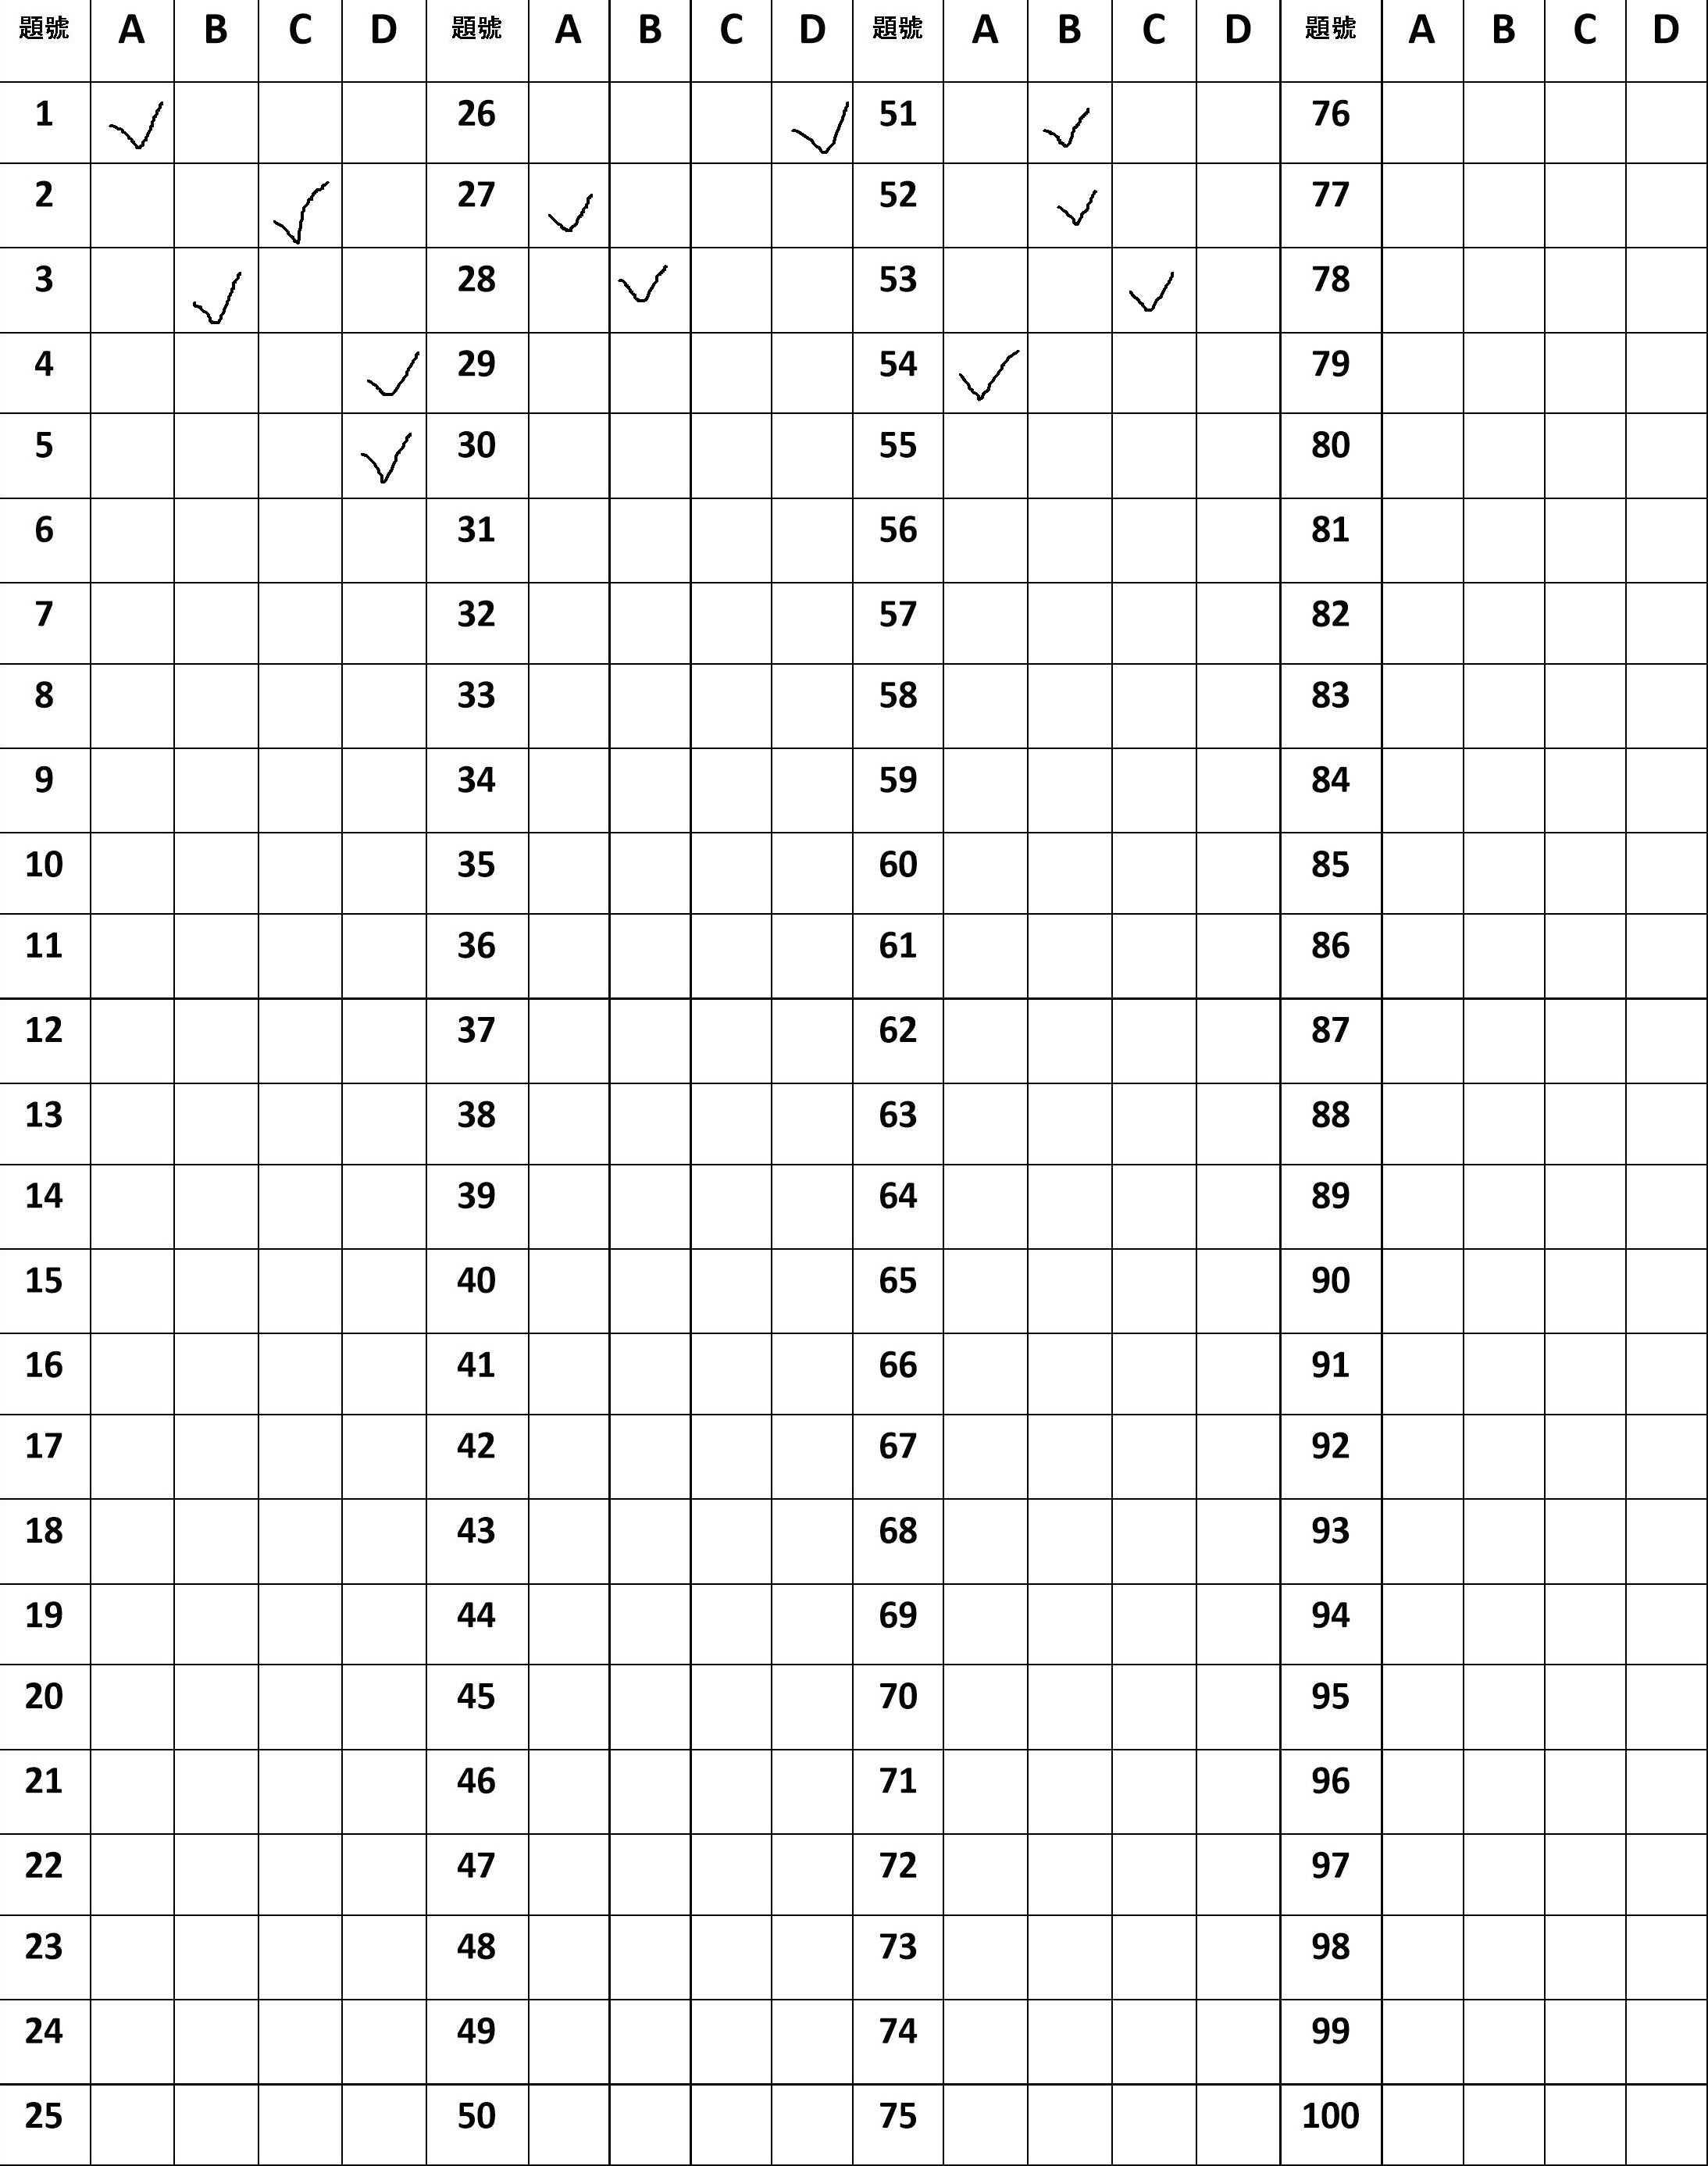 題號 A B C D 題號 A B C D 題號 A B C D 題號 A B C D
1 ✓ 26 ✓ 51 ✓ 76
2 ✓ 27 ✓ 52 ✓ 77
3 ✓ 28 ✓ 53 ✓ 78
4 ✓ 29 54 ✓ 79
5 ✓ 30 55 80
6 31 56 81
7 32 57 82
8 33 58 83
9 34 59 84
10 35 60 85
11 36 61 86
12 37 62 87
13 38 63 88
14 39 64 89
15 40 65 90
16 41 66 91
17 42 67 92
18 43 68 93
19 44 69 94
20 45 70 95
21 46 71 96
22 47 72 97
23 48 73 98
24 49 74 99
25 50 75 100